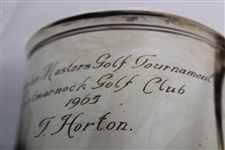 Masters Golf Tournament
Golf Club
1965
T. Horton.